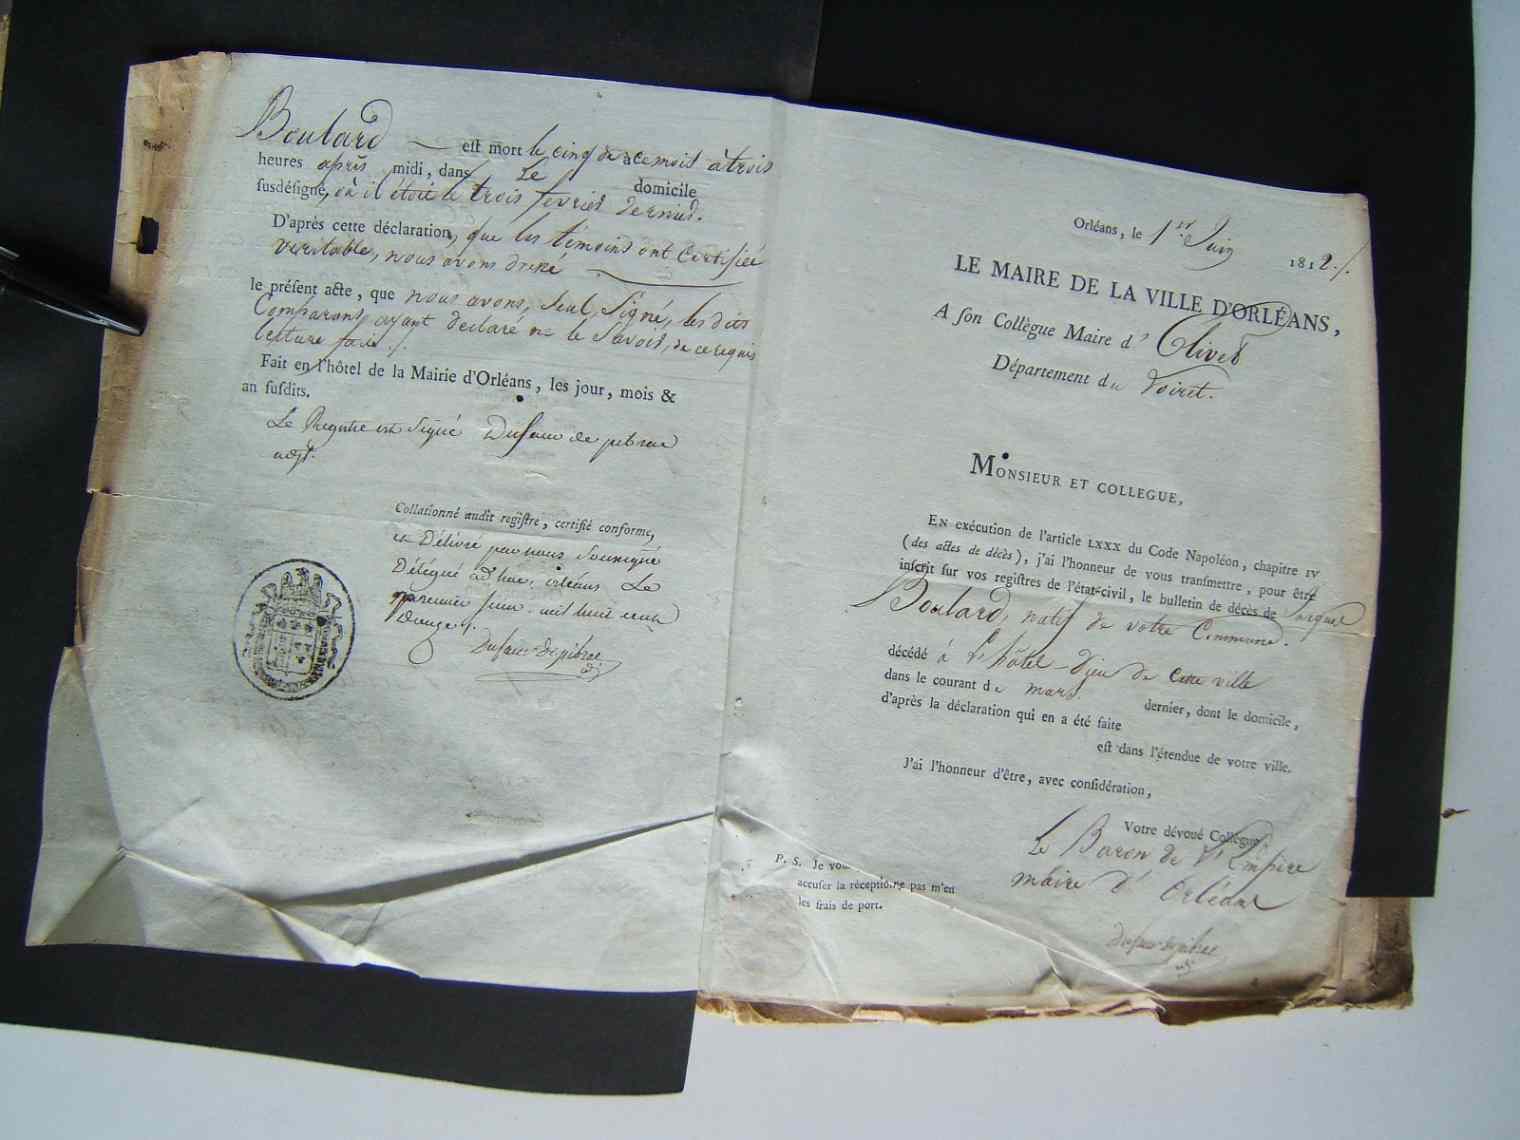 Boulard est mort le cinq de ce mois à trois
heures après midi, dans Le domicile
susdésigné, où il étoit le trois fevrier dernier.
D'après cette déclaration, que les témoins ont Certifiée
veritable, nous avons dressé
le présent acte, que nous avons, seul, signé, les dits
Comparans ayant declaré ne le Savoir, de ce requis
lecture faite.
Fait en l'hôtel de la Mairie d'Orléans, les jour, mois &
an susdits.
Le Registre est signé Dufaur de pibrac
adjt.
Collationné audit registre, certifié conforme,
et Délivré par nous Soussigné
Délégué orléans Le
premier juin mil huit cent
Douze.
Dufaur de pibrac
Orléans, le 1er Juin 1812.
LE MAIRE DE LA VILLE D'ORLÉANS,
A son Collègue Maire d' Olivet
Département du Loiret.
MONSIEUR ET COLLEGUE,
EN exécution de l'article LXXX du Code Napoléon, chapitre IV
(des actes de décès), j'ai l'honneur de vous transmettre, pour être
inscrit sur vos registres de l'état-civil, le bulletin de décès de
Boulard, natif de votre Commune.
décédé à l'hôtel-Dieu de Cette ville
dans le courant de mars dernier, dont le domicile,
d'après la déclaration qui en a été faite
est dans l'étendue de votre ville.
J'ai l'honneur d'être, avec considération,
Votre dévoué Collègue,
Le Baron de l'Empire
maire d'Orléans
Dufaur de pibrac
adjt
P. S. Je vou
accuser la réception, ne pas m'en
les frais de port.